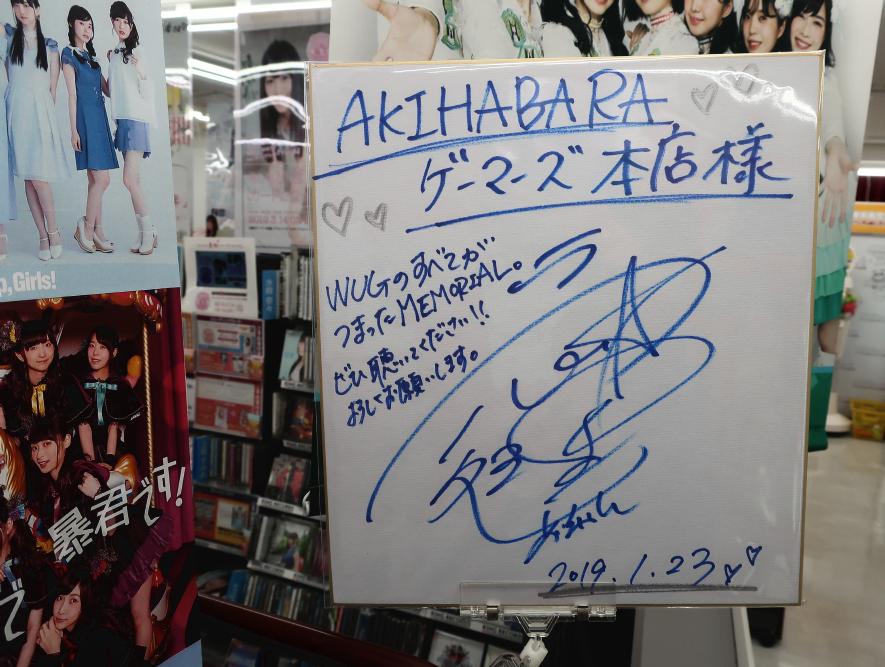 AKIHABARA
ゲーマーズ 本店 様
WUGのすべてが
つまったMEMORIAL。
ぜひ聴いてください!!
よろしくお願いします。
あいちゃん
2019.1.23
p, Girls!
暴君です!
で